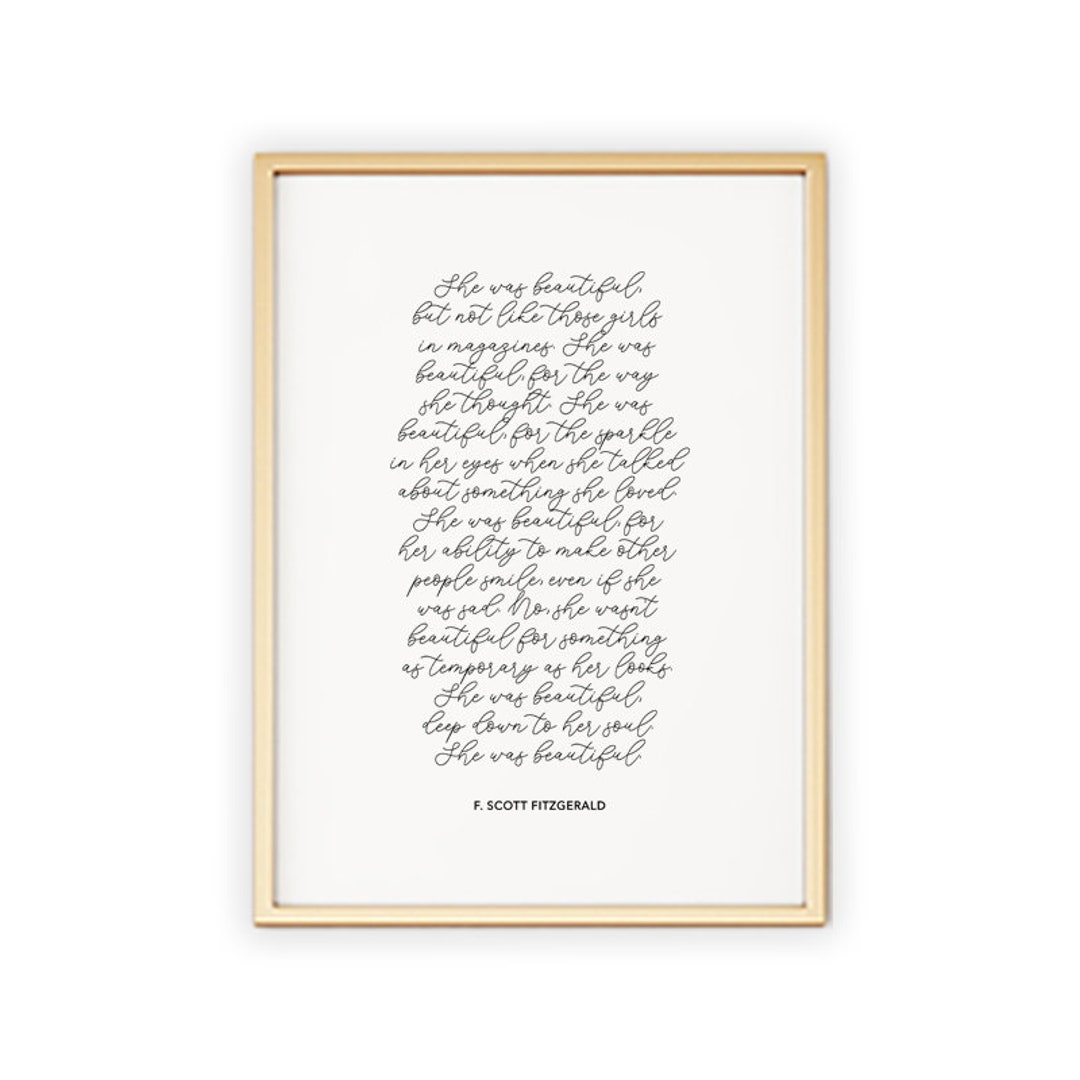 She was beautiful,
but not like those girls
in magazines. She was
beautiful, for the way
she thought. She was
beautiful, for the sparkle
in her eyes when she talked
about something she loved.
She was beautiful, for
her ability to make other
people smile, even if she
was sad. No, she wasn't
beautiful for something
as temporary as her looks.
She was beautiful,
deep down to her soul.
She was beautiful.
F. SCOTT FITZGERALD